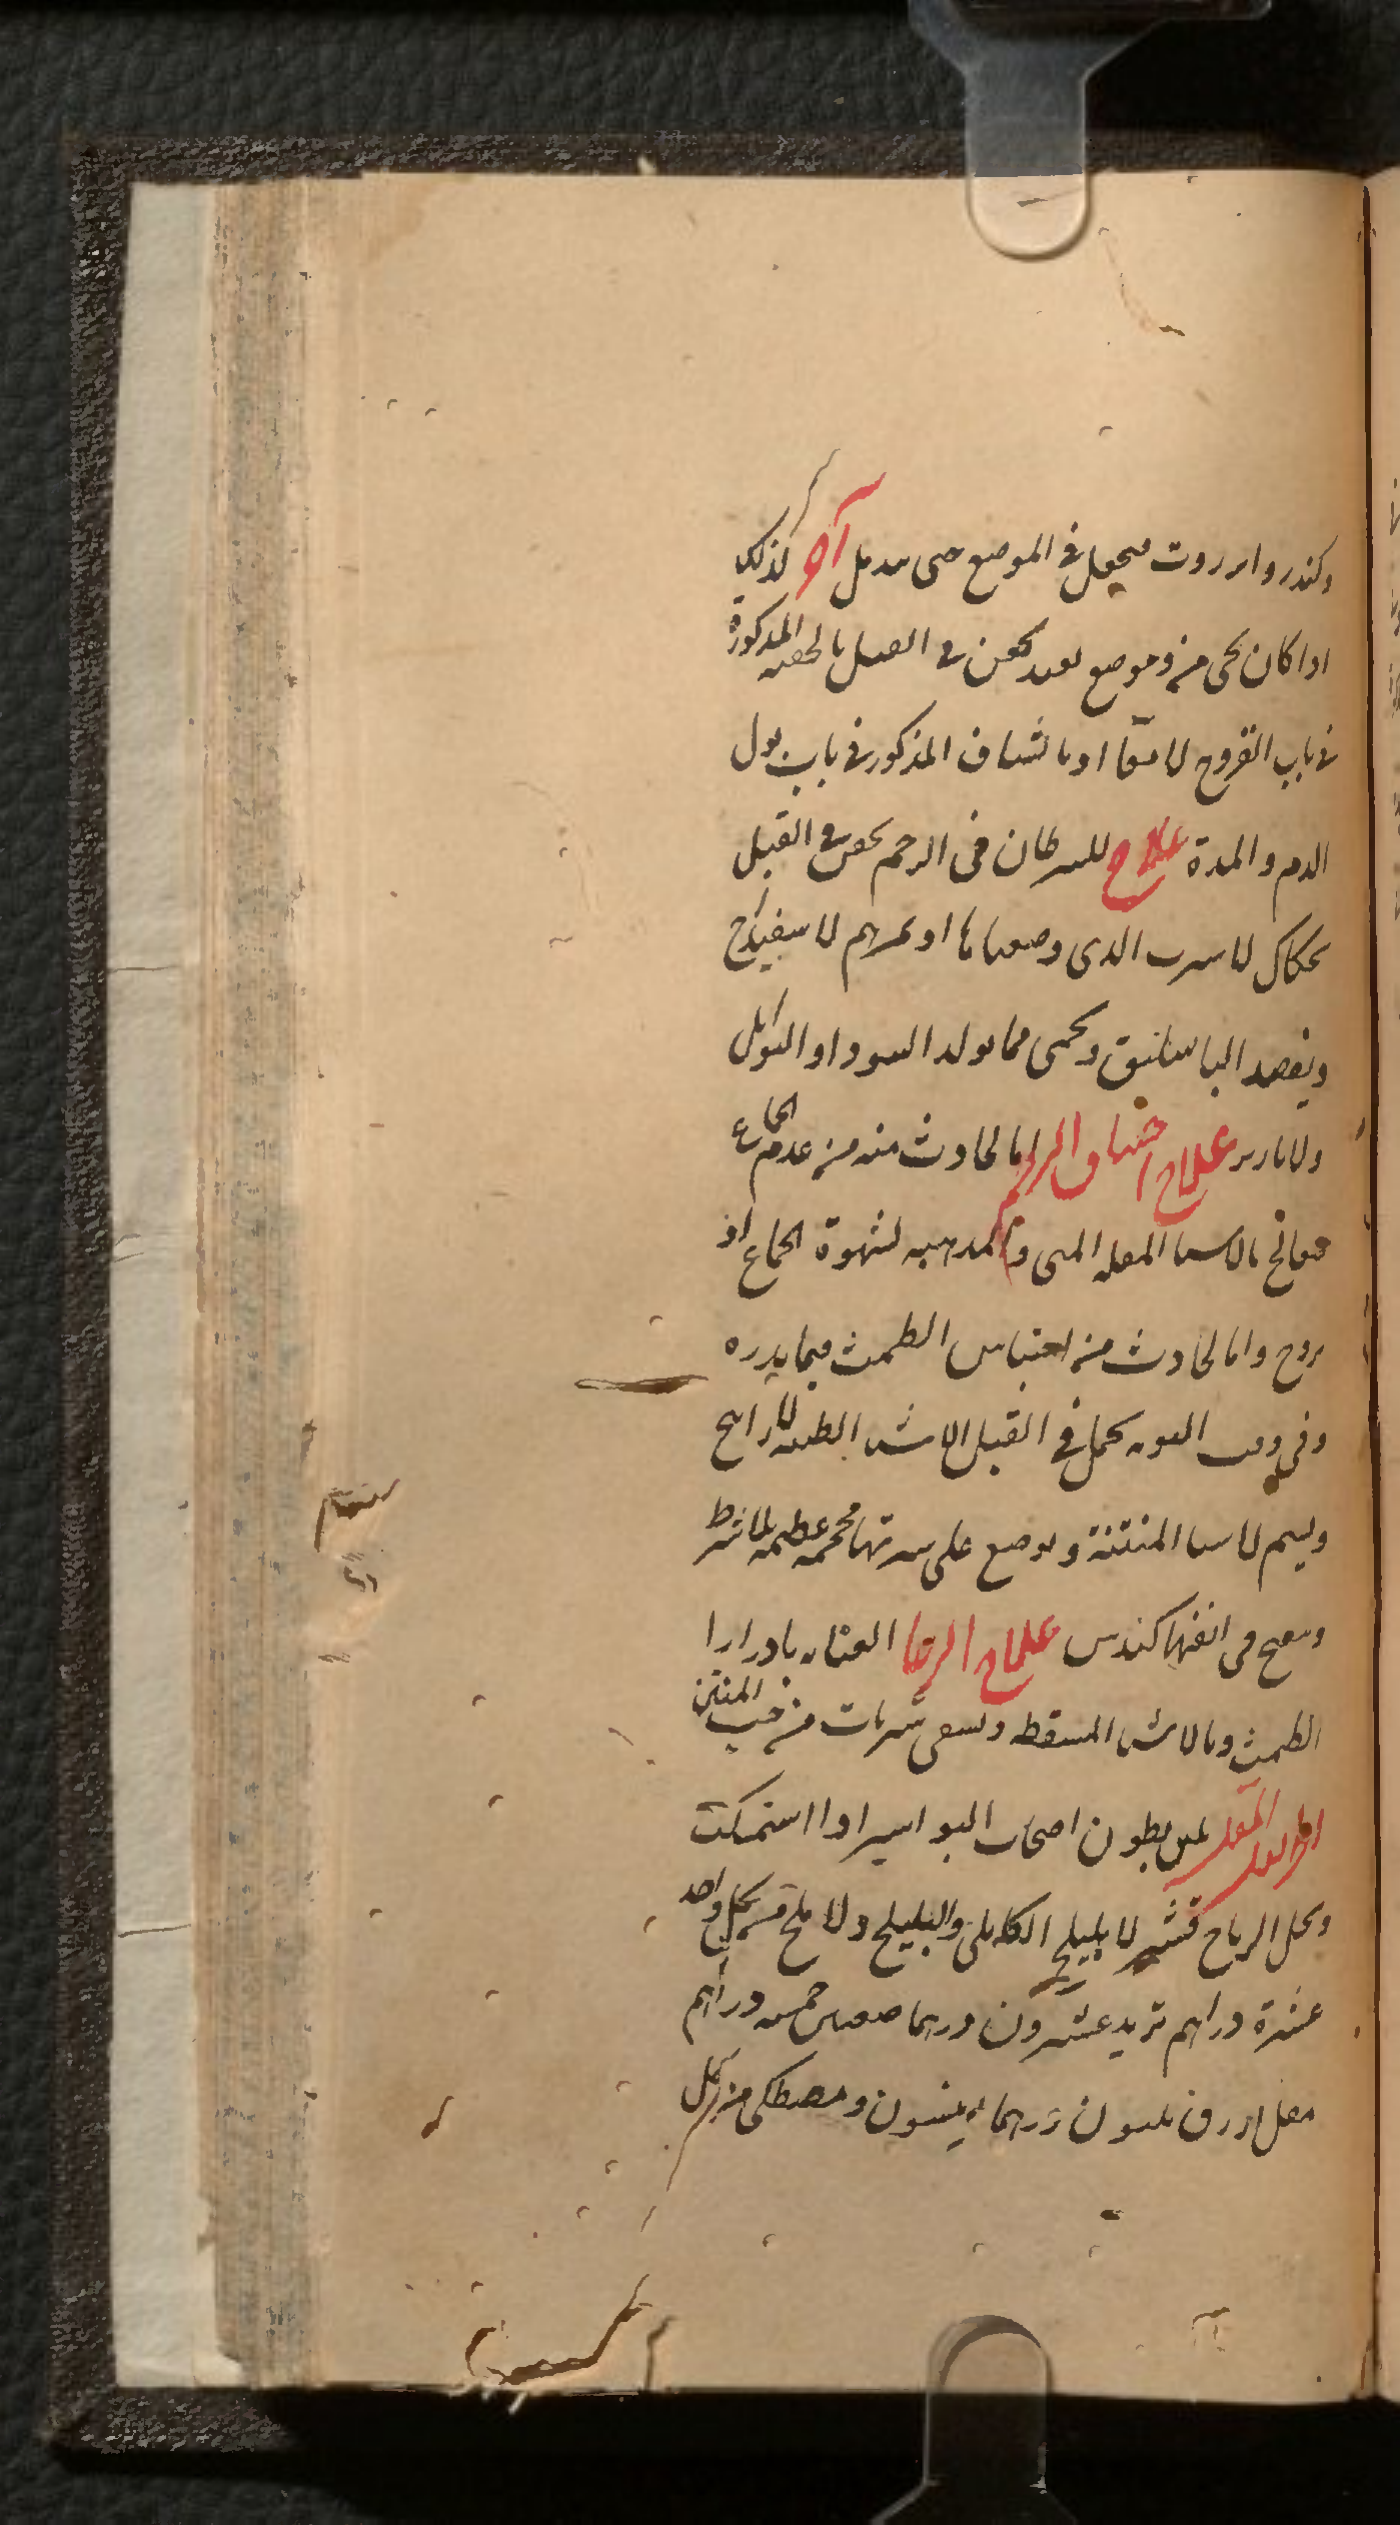 وكندر وانزروت فيجعل في الموضع حتى يندمل آخر لذلك
اذا كان يجى من موضع بعيد يحقن في القبل بالحقنه المذكورة
في باب القروح الامعا او بالشياف المذكور في باب بول
الدم والمدة علاج للسرطان في الرحم يحقن في القبل
بحكاك الاسرب الذى وصفناها او بمرهم الاسفيداج
ويفصد الباسليق ويحمى مما يولد السودا والتوابل
والابازير علاج اختناق الرحم اما الحادث منه من عدم الجماع
فيعالج بالاشيا المقلله المنى والمذهبه لشهوة الجماع او
بزوج واما الحادث من احتباس الطمث فبما يدره
وفي وقت النوبه يحمل في القبل الاشيا الطيبه الارايح
ويشم الاشيا المنتنة ويوضع على سرتها محجمه عظيمه بلا شرط
وينفخ في انفها كندس علاج الرجا العنايه بادرار
الطمث وبالاشيا المسقطه وتسقى شربات من حب المنتن
اطريفل المقل يلين بطون اصحاب البواسير اذا استمسكت
ويحل الرياح قشر الاهليلج الكابلى والبليلج والاملج من كل واحد
عشرة دراهم تربد عشرون درهما خمسه دراهم
مقل ازرق ثلثون درهما انيسون ومصطكى من كل